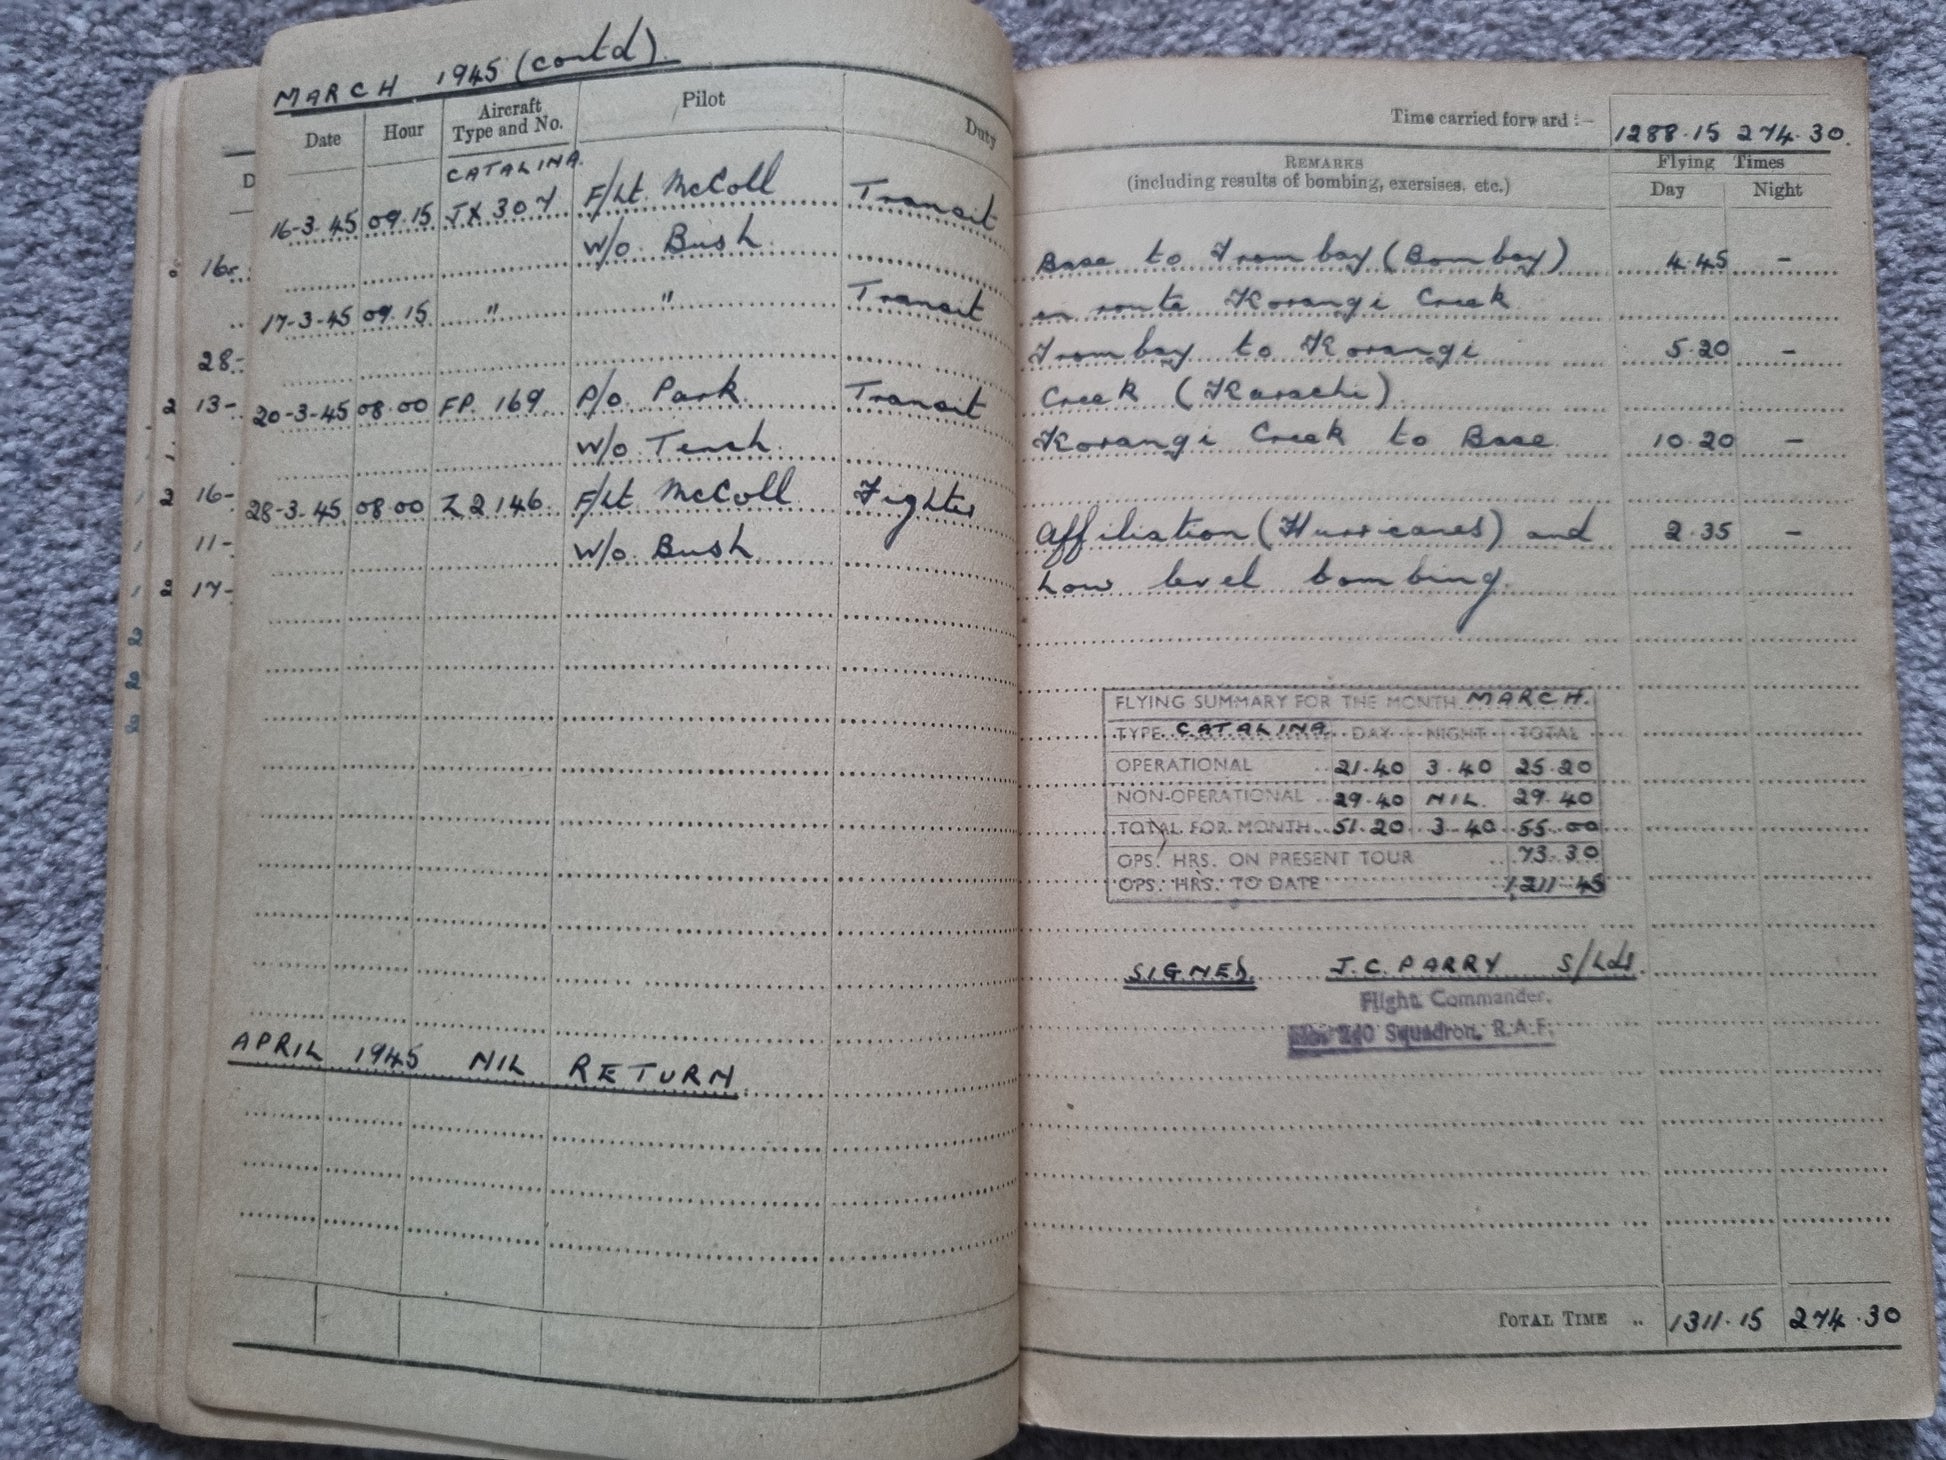 MARCH 1945 (contd).
Date Hour Aircraft Type and No. Pilot Duty
CATALINA.
16-3-45 09.15 JX 307 F/Lt. McColl Transit
W/o. Bush.
17-3-45 09.15 " " Transit
20-3-45 08.00 FP. 169 P/o. Park. Transit
W/o. Tench.
28-3-45 08.00 Z 2146. F/Lt McColl Fighter
W/o. Bush.
APRIL 1945 NIL RETURN.
16-
28-
2 13-
2 16-
11-
2 17-
2
2
2
Time carried forward :- 1288.15 274.30.
REMARKS
(including results of bombing, exersises, etc.)
Flying Times
Day Night
Base to Trombay (Bombay) 4.45 -
en route Korangi Creek
Trombay to Korangi 5.20 -
Creek (Karachi).
Korangi Creek to Base. 10.20 -
Affiliation (Hurricanes) and 2.35 -
Low level bombing.
FLYING SUMMARY FOR THE MONTH MARCH.
TYPE CATALINA DAY NIGHT TOTAL
OPERATIONAL 21.40 3.40 25.20
NON-OPERATIONAL 29.40 NIL. 29.40
TOTAL FOR MONTH 51.20 3.40 55.00
OPS. HRS. ON PRESENT TOUR 73.30
OPS. HRS. TO DATE 1,211.45
SIGNED. J.C. PARRY S/Ldr.
Flight Commander,
No. 240 Squadron, R.A.F.
TOTAL TIME .. 1311.15 274.30